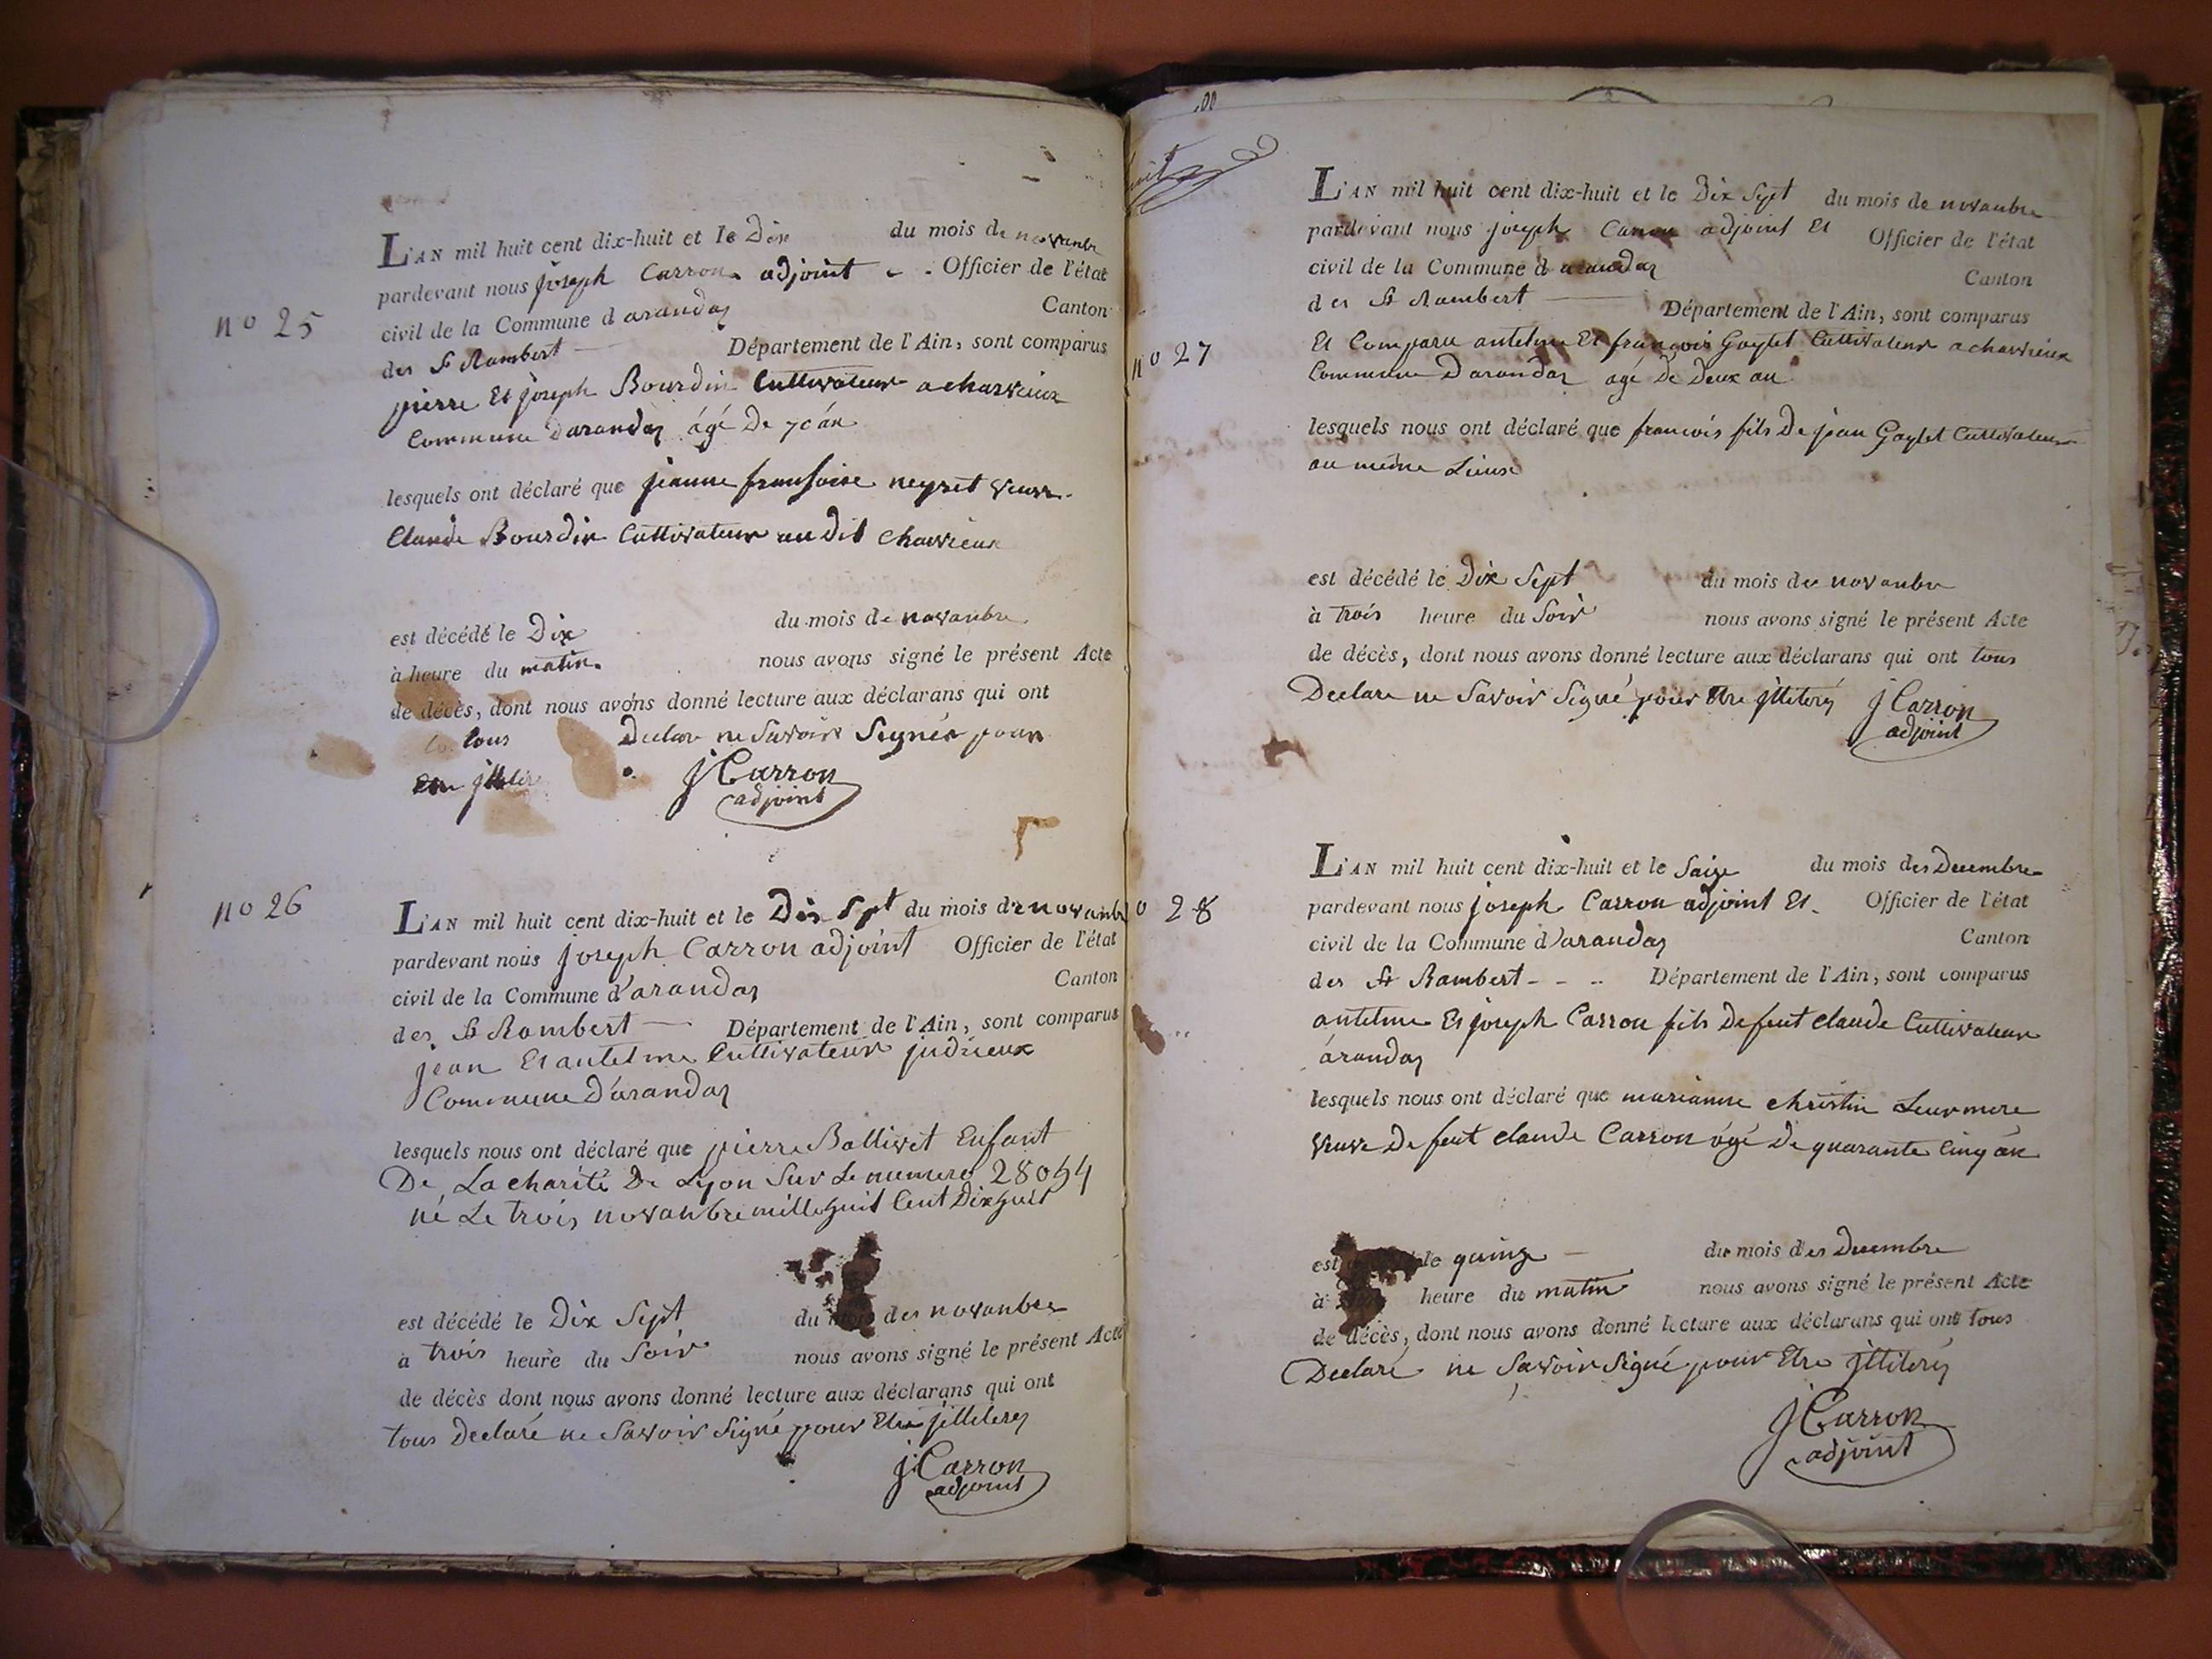 no 25
L'AN mil huit cent dix-huit et le Dix du mois de novanbre
pardevant nous joseph Carron adjoint Officier de l'état
civil de la Commune d arandas Canton
des St Rambert Département de l'Ain, sont comparus
pierre Et joseph Bourdin Cultivateur a charvieux
Commune Darandas âgé De 70 án
lesquels ont déclaré que jeanne fransoise neyret veuve
Claude Bourdin Cultivateur au Dit charvieux
est décédé le Dix du mois de novanbre
à heure du matin. nous avons signé le présent Acte
de décès, dont nous avons donné lecture aux déclarans qui ont
tous Declare ne Savoir Signér pour
J Carron
adjoint
no 26
L'AN mil huit cent dix-huit et le Dix Sept du mois de novanbre
pardevant nous joseph Carron adjoint Officier de l'état
civil de la Commune d'arandas Canton
des St Rambert Département de l'Ain, sont comparus
jean Et antelme Cultivateur judrieux
Commune D'arandas
lesquels nous ont déclaré que pierre Ballivet Enfant
De La charité De Lyon Sur Le numero 28054
né Le trois novanbre mille huit Cent Dix huit
est décédé le Dix Sept du mois des novanbre
à trois heure du Soir nous avons signé le présent Acte
de décès dont nous avons donné lecture aux déclarans qui ont
tous Declaré ne Savoir Signé pour Etre jlliterés
J Carron
adjoint
00
no 27
L'AN mil huit cent dix-huit et le Dix Sept du mois de novanbre
pardevant nous joseph Carron adjoint Et Officier de l'état
civil de la Commune d arandas Canton
des St Rambert Département de l'Ain, sont comparus
Et Comparu antelme Et francois Gaytet Cultivateur a charvieux
Commune Darandas agé De Deux an
lesquels nous ont déclaré que francois fils De jean Gaytet Cultivateur
au meme Lieux
est décédé le Dix Sept du mois des novanbre
à trois heure du Soir nous avons signé le présent Acte
de décès, dont nous avons donné lecture aux déclarans qui ont tous
Declare ne Savoir Signé pour Etre jlliterés J Carron
adjoint
o 28
L'AN mil huit cent dix-huit et le Saize du mois des Decembre
pardevant nous joseph Carron adjoint Et Officier de l'état
civil de la Commune d'arandas Canton
des St Rambert Département de l'Ain, sont comparus
antelme Et joseph Carron fils De feut claude Cultivateur
árandas
lesquels nous ont déclaré que marianne christin Leur mere
veuve De feut claude Carron ógé De quarante Cinq án
est le quinze du mois des Decembre
à heure du matin nous avons signé le présent Acte
de décès, dont nous avons donné lecture aux déclarans qui ont tous
Declaré ne Savoir Signé pour Etre jlliterés
J Carron
adjoint